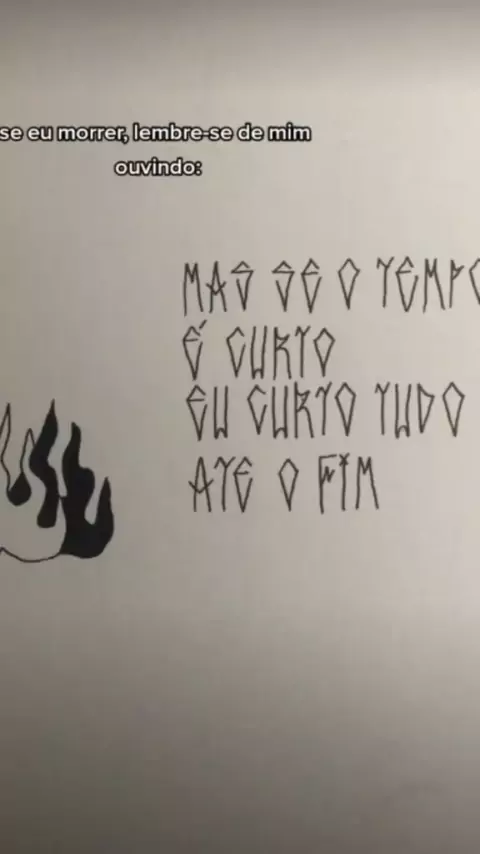 se eu morrer, lembre-se de mim
ouvindo:
MAS SE O TEMPO
É CURTO
EU CURTO TUDO
ATE O FIM